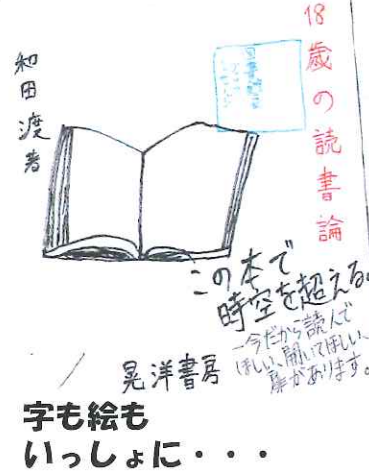 18歳の読書論
和田渡著
この本で
時空を超える。
―今だから読んで
ほしい、開いてほしい、
扉があります。
晃洋書房
字も絵も
いっしょに・・・